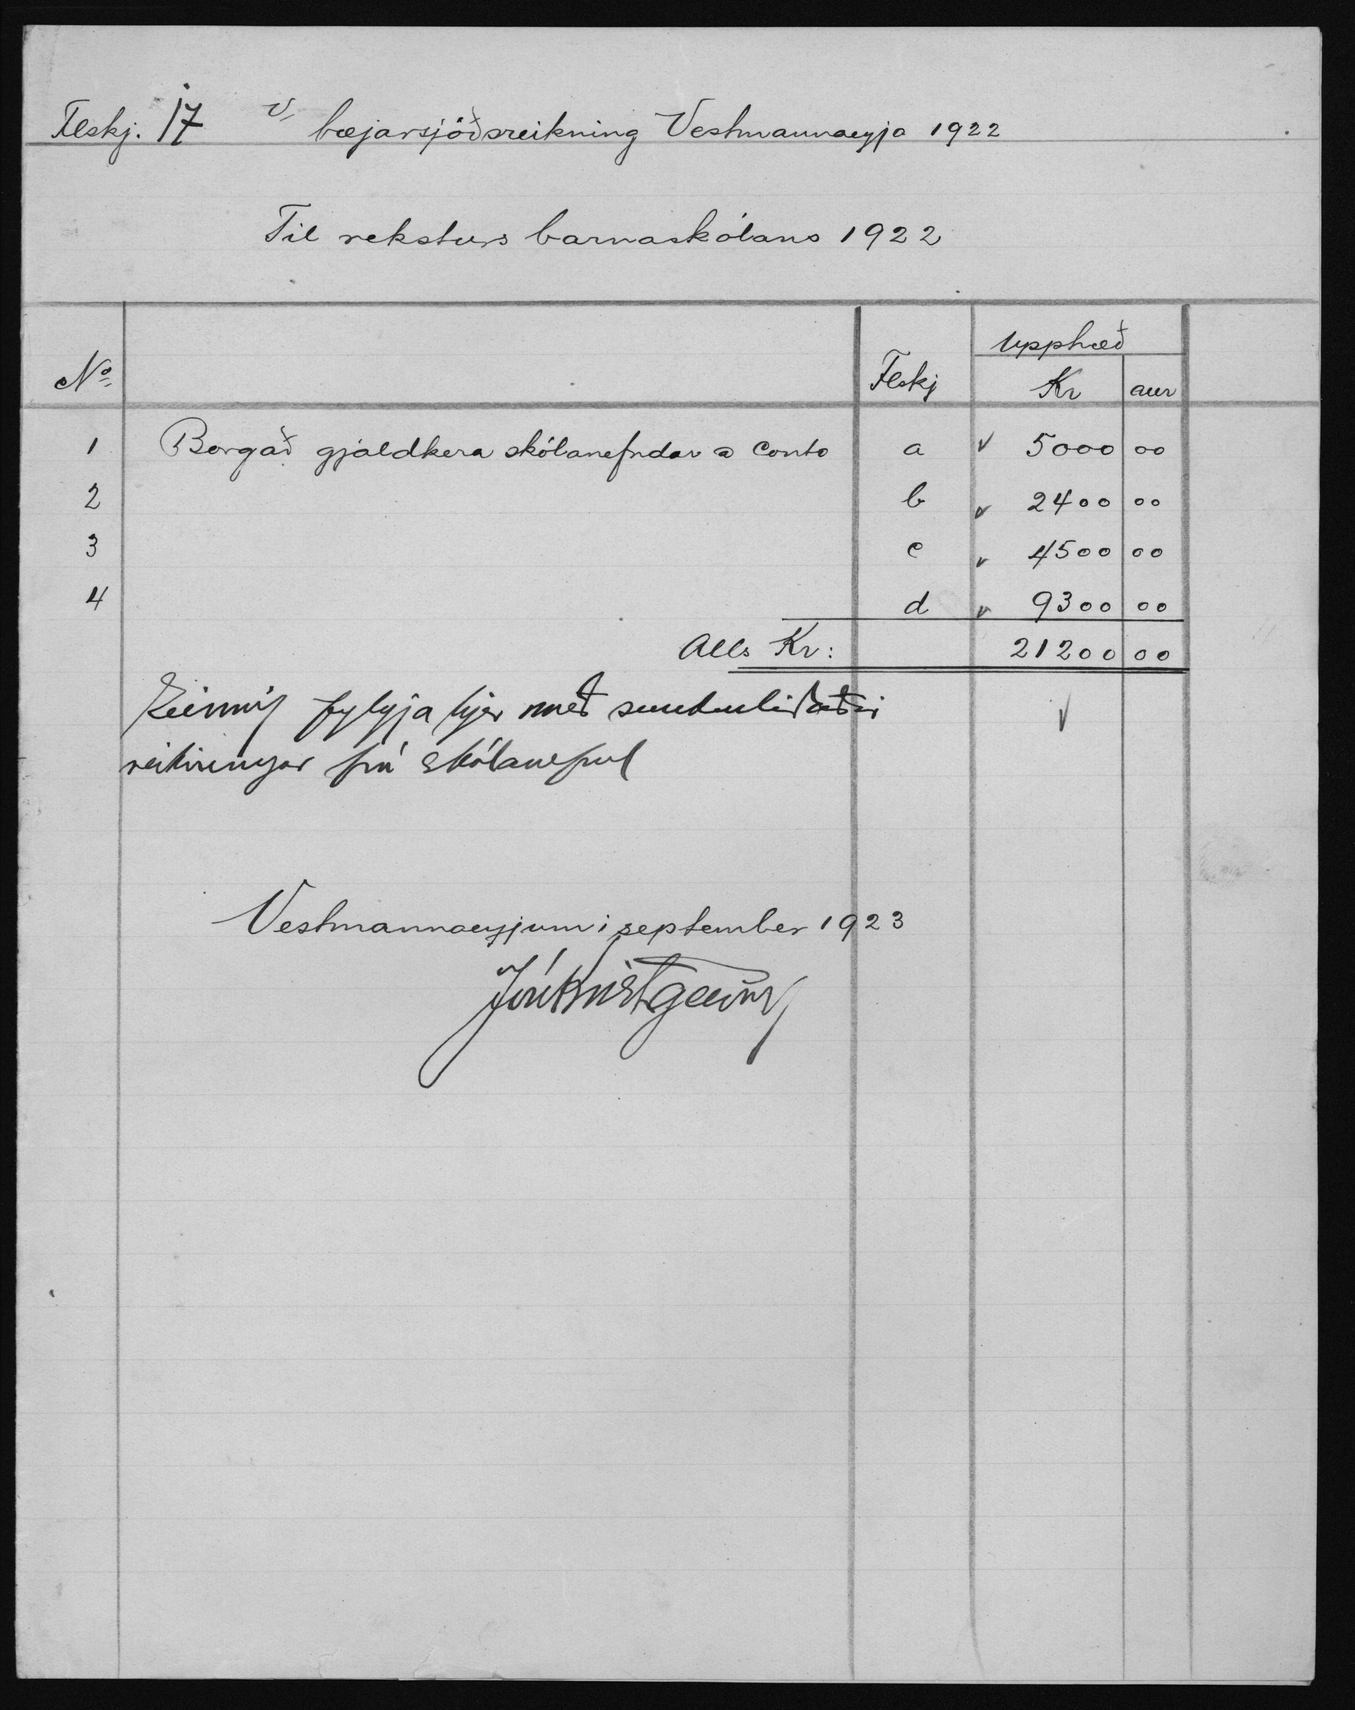 Flskj. 17 v/ bæjarsjóðsreikning Vestmannaeyja 1922
Til reksturs barnaskólans 1922
Upphæð
No. Flskj Kr aur
1 Borgað gjaldkera skólanefndar a Conto a 5000 00
2 b 2400 00
3 c 4500 00
4 d 9300 00
Alls Kr: 21200 00
Einnig fylgja hjer með sundurliðaðir
reikningar frá skólanefnd
Vestmannaeyjum í september 1923